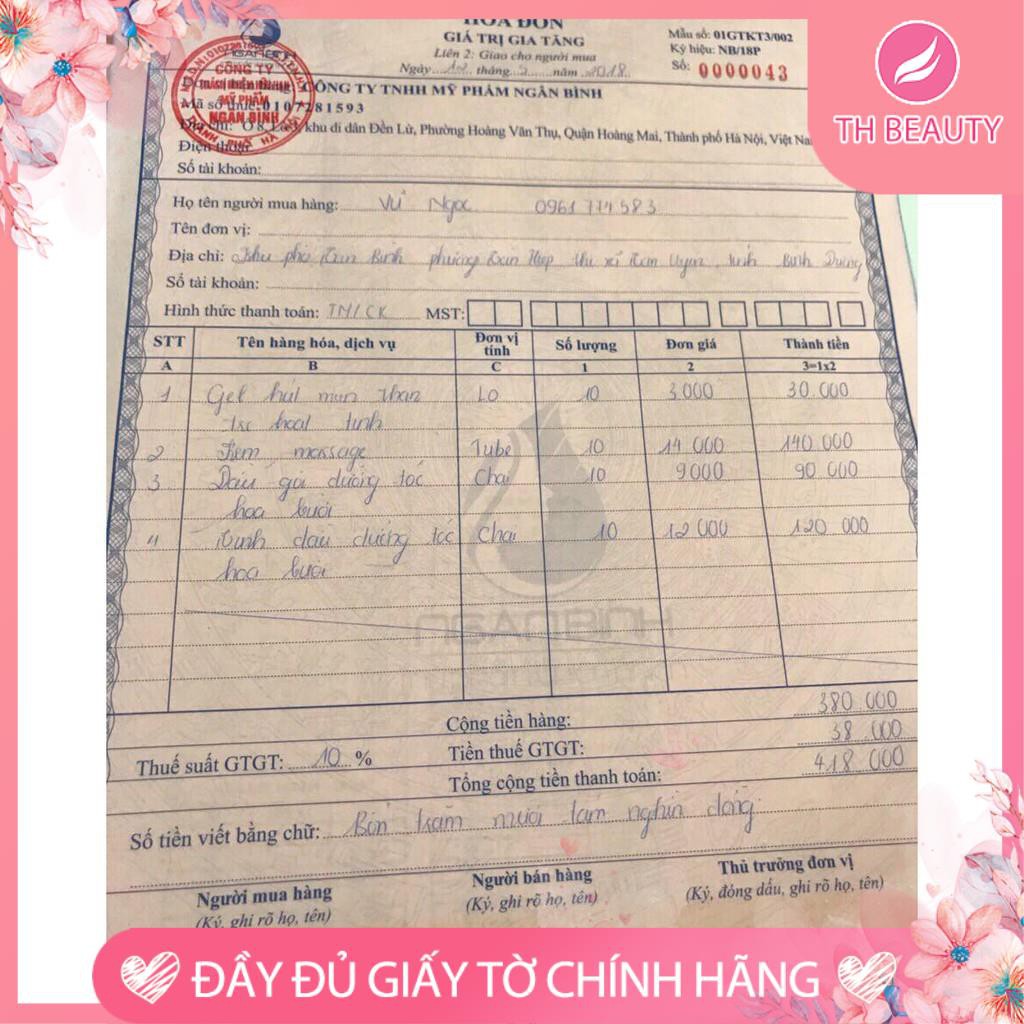 HÓA ĐƠN
GIÁ TRỊ GIA TĂNG
Liên 2: Giao cho người mua
Ngày 12 tháng 2 năm 2018
Mẫu số: 01GTKT3/002
Ký hiệu: NB/18P
Số: 0000043
TH BEAUTY
CÔNG TY
MỸ PHẨM
NGÂN BÌNH
CÔNG TY TNHH MỸ PHẨM NGÂN BÌNH
Mã số thuế: 0107281593
khu di dân Đền Lừ, Phường Hoàng Văn Thụ, Quận Hoàng Mai, Thành phố Hà Nội, Việt Nam
Điện thoại
Số tài khoản:
Họ tên người mua hàng: Vũ Ngọc 0961774583
Tên đơn vị:
Địa chỉ: Khu phố Tân Bình phường Tân Hiệp thị xã Tân Uyên, tỉnh Bình Dương
Số tài khoản:
Hình thức thanh toán: TM/CK MST:
STT Tên hàng hóa, dịch vụ Đơn vị tính Số lượng Đơn giá Thành tiền
A B C 1 2 3=1x2
1 Gel hút mụn than Lọ 10 3.000 30.000
hoạt tính
2 Kem massage Tube 10 14 000 140.000
3 Dầu gội dưỡng tóc Chai 10 9000 90 000
hoa bưởi
4 Tinh dầu dưỡng tóc Chai 10 12 000 120 000
hoa bưởi
NGANBINH
Cộng tiền hàng: 380 000
Thuế suất GTGT: 10 % Tiền thuế GTGT: 38 000
Tổng cộng tiền thanh toán: 418 000
Số tiền viết bằng chữ: Bốn trăm mười tám nghìn đồng
Người mua hàng Người bán hàng Thủ trưởng đơn vị
(Ký, ghi rõ họ, tên) (Ký, ghi rõ họ, tên) (Ký, đóng dấu, ghi rõ họ, tên)
ĐẦY ĐỦ GIẤY TỜ CHÍNH HÃNG